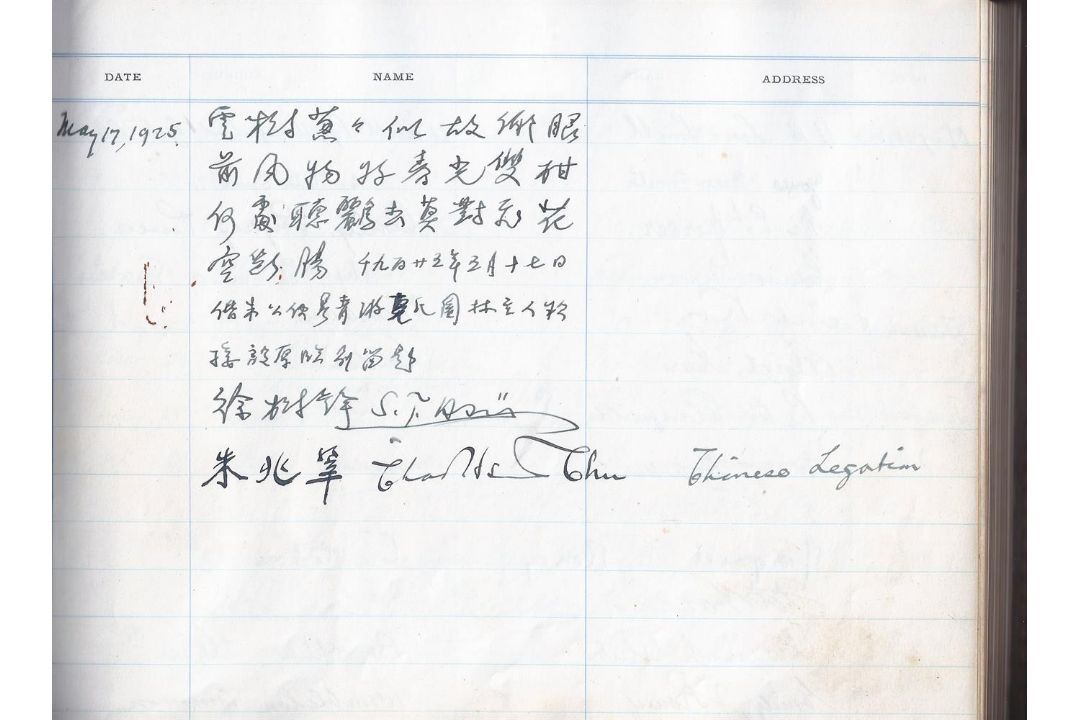 DATE NAME ADDRESS
May 17, 1925. 雲樹蔥々似故鄉眼
前風物好春光雙柑
何處聽鸝去莫對花
空斷腸 千九百廿五年五月十七日
偕朱公使鼎青游氏園林主人欵
接殷厚臨別留題
徐樹錚 S. T.
朱兆莘 Chao Hsin Chu Chinese Legation